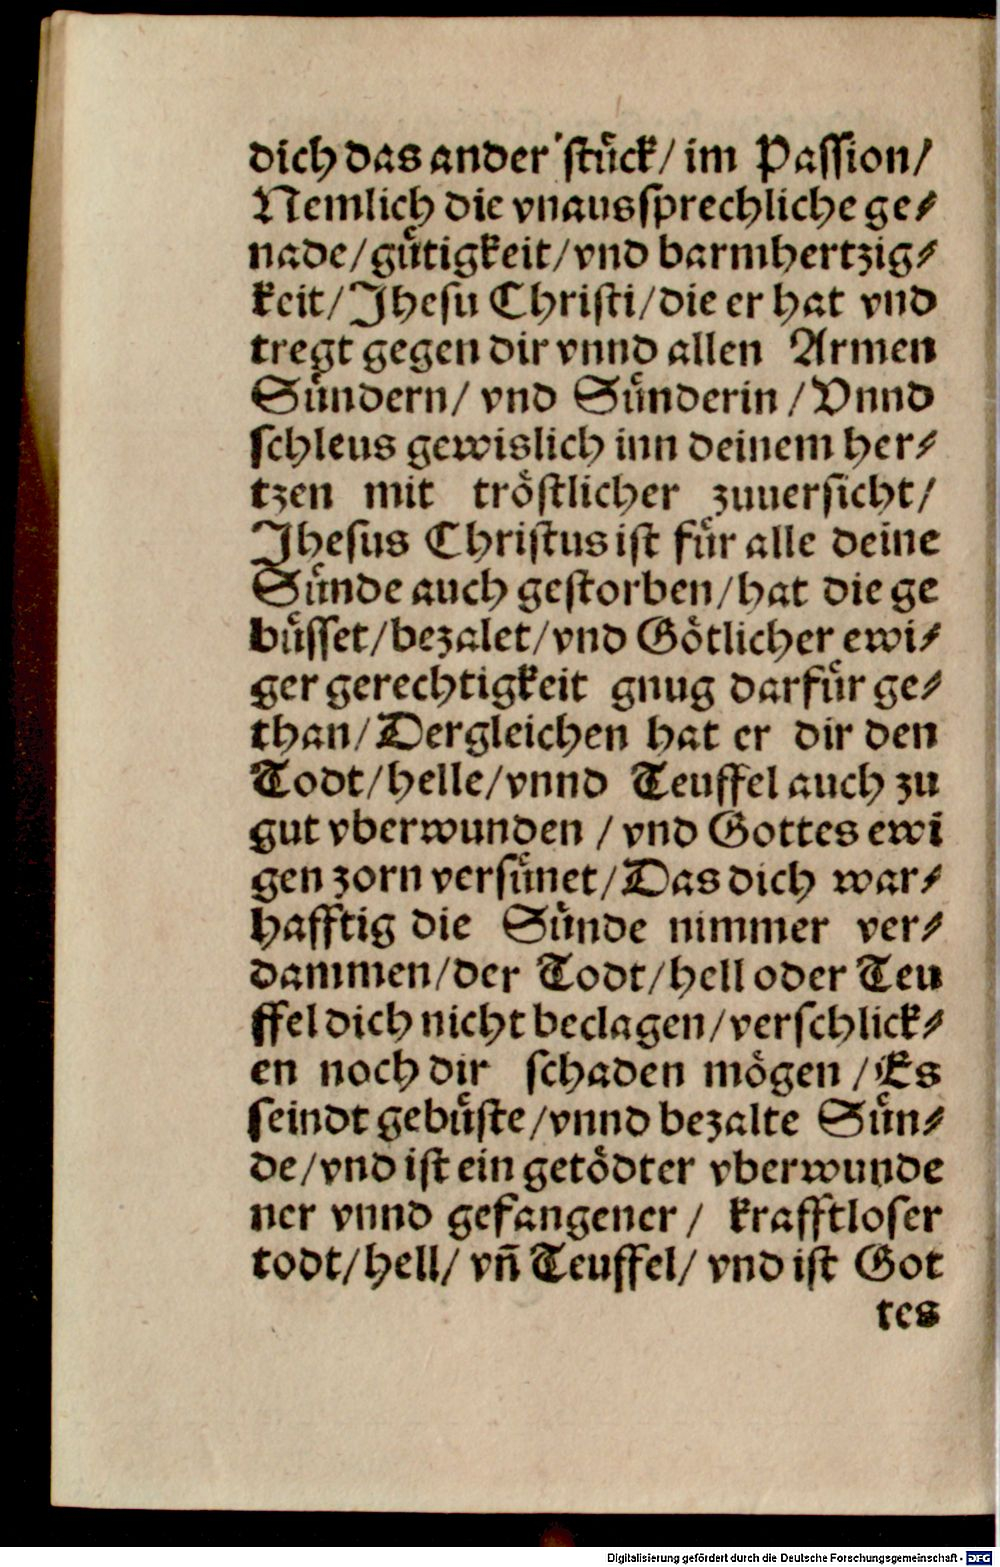 dich das ander stuͤck/ im Passion/
Nemlich die vnaussprechliche ge⸗
nade/guͤtigkeit/vnd barmhertzig⸗
keit/Jhesu Christi/die er hat vnd
tregt gegen dir vnnd allen Armen
Suͤndern/ vnd Suͤnderin /Vnnd
schleus gewislich inn deinem her⸗
tzen mit troͤstlicher zuuersicht/
Jhesus Christus ist fuͤr alle deine
Suͤnde auch gestorben/hat die ge
buͤsset/bezalet/vnd Goͤtlicher ewi⸗
ger gerechtigkeit gnug darfuͤr ge⸗
than/Dergleichen hat er dir den
Todt/helle/vnnd Teuffel auch zu
gut vberwunden /vnd Gottes ewi
gen zorn versuͤnet/Das dich war⸗
hafftig die Suͤnde nimmer ver⸗
dammen/der Todt/hell oder Teu
ffel dich nicht beclagen/verschlick⸗
en noch dir schaden moͤgen /Es
seindt gebuͤste/vnnd bezalte Suͤn⸗
de/vnd ist ein getoͤdter vberwunde
ner vnnd gefangener/ krafftloser
todt/hell/ vñ Teuffel/ vnd ist Got
tes
Digitalisierung gefördert durch die Deutsche Forschungsgemeinschaft - DFG